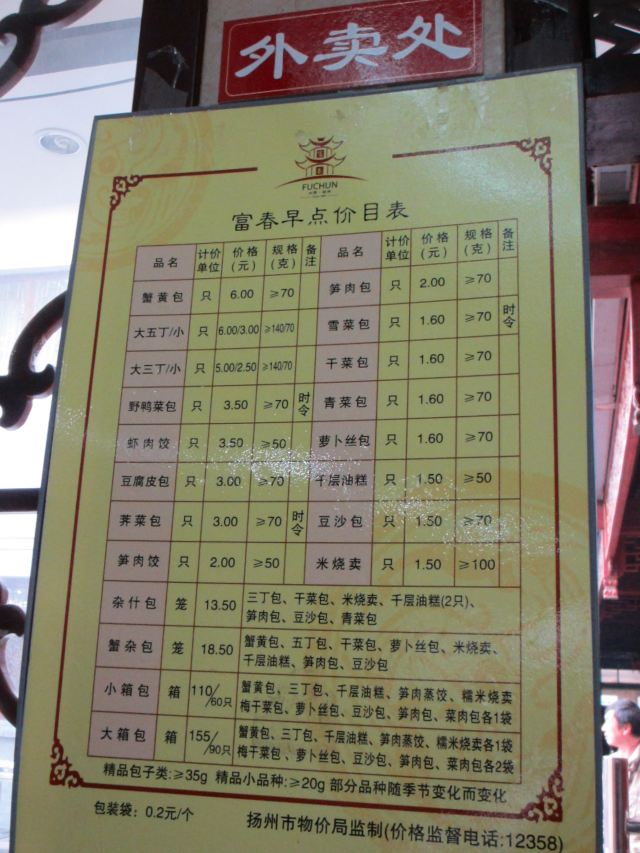 外卖处
FUCHUN
富春早点价目表
品名 计价单位 价格(元) 规格(克) 备注 品名 计价单位 价格(元) 规格(克) 备注
蟹黄包 只 6.00 ≥70 笋肉包 只 2.00 ≥70
大五丁/小 只 6.00/3.00 ≥140/70 雪菜包 只 1.60 ≥70 时令
大三丁/小 只 5.00/2.50 ≥140/70 干菜包 只 1.60 ≥70
野鸭菜包 只 3.50 ≥70 时令 青菜包 只 1.60 ≥70
虾肉饺 只 3.50 ≥50 萝卜丝包 只 1.60 ≥70
豆腐皮包 只 3.00 ≥70 千层油糕 只 1.50 ≥50
荠菜包 只 3.00 ≥70 时令 豆沙包 只 1.50 ≥70
笋肉饺 只 2.00 ≥50 米烧卖 只 1.50 ≥100
杂什包 笼 13.50 三丁包、干菜包、米烧卖、千层油糕(2只)、
笋肉包、豆沙包、青菜包
蟹杂包 笼 18.50 蟹黄包、五丁包、干菜包、萝卜丝包、米烧卖、
千层油糕、笋肉包、豆沙包
小箱包 箱 110/60只 蟹黄包、三丁包、千层油糕、笋肉蒸饺、糯米烧卖
梅干菜包、萝卜丝包、豆沙包、笋肉包、菜肉包各1袋
大箱包 箱 155/90只 蟹黄包、三丁包、千层油糕、笋肉蒸饺、糯米烧卖各1袋
梅干菜包、萝卜丝包、豆沙包、笋肉包、菜肉包各2袋
精品包子类:≥35g 精品小品种:≥20g 部分品种随季节变化而变化
包装袋：0.2元/个
扬州市物价局监制(价格监督电话:12358)